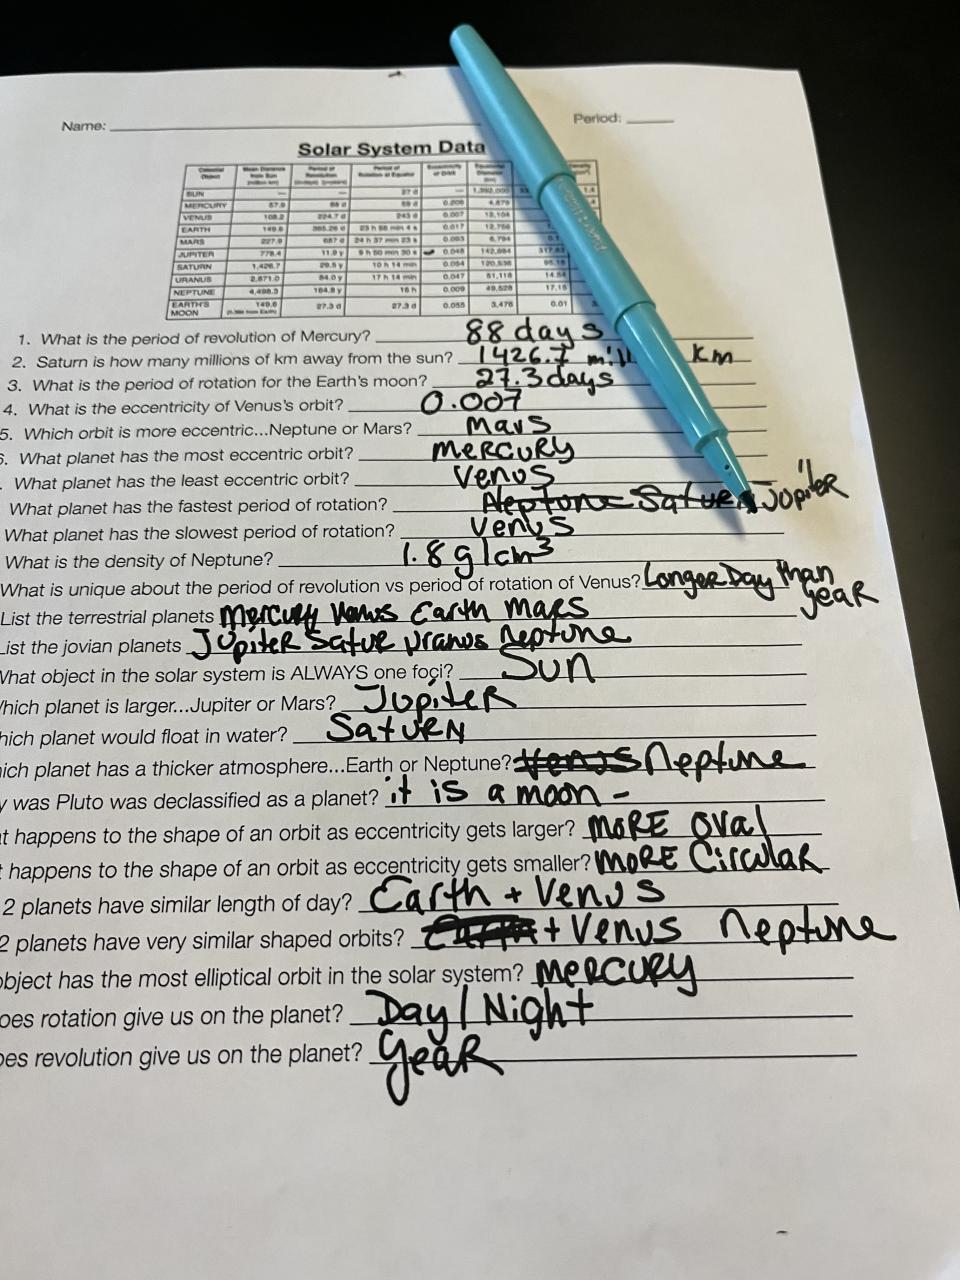 Name:
Period:
Solar System Data
Celestial Object Mean Distance from Sun (million km) Period of Revolution Period of Rotation at Equator Eccentricity of Orbit Equatorial Diameter (km)
SUN — — 27 d — 1,392,000
MERCURY 57.9 88 d 59 d 0.206 4,879
VENUS 108.2 224.7 d 243 d 0.007 12,104
EARTH 149.6 365.26 d 23 h 56 min 4 s 0.017 12,756
MARS 227.9 687 d 24 h 37 min 23 s 0.093 6,794
JUPITER 778.4 11.9 y 9 h 50 min 30 s 0.048 142,984
SATURN 1,426.7 29.5 y 10 h 14 min 0.054 120,536
URANUS 2,871.0 84.0 y 17 h 14 min 0.047 51,118 14.54
NEPTUNE 4,498.3 164.8 y 16 h 0.009 49,528 17.15
EARTH'S MOON 149.6 27.3 d 27.3 d 0.055 3,476 0.01
1. What is the period of revolution of Mercury? 88 days
2. Saturn is how many millions of km away from the sun? 1426.7 mill km
3. What is the period of rotation for the Earth's moon? 27.3 days
4. What is the eccentricity of Venus's orbit? 0.007
5. Which orbit is more eccentric...Neptune or Mars? Mars
6. What planet has the most eccentric orbit? MERCURY
. What planet has the least eccentric orbit? Venus
What planet has the fastest period of rotation? Neptune Saturn Jupiter
What planet has the slowest period of rotation? Venus
What is the density of Neptune? 1.8 g/cm³
What is unique about the period of revolution vs period of rotation of Venus? Longer Day than year
List the terrestrial planets Mercury Venus Earth Mars
List the jovian planets Jupiter Satur Uranus Neptune
What object in the solar system is ALWAYS one foci? Sun
Which planet is larger...Jupiter or Mars? Jupiter
hich planet would float in water? Saturn
ich planet has a thicker atmosphere...Earth or Neptune? Venus Neptune
y was Pluto was declassified as a planet? it is a moon -
t happens to the shape of an orbit as eccentricity gets larger? MORE oval
happens to the shape of an orbit as eccentricity gets smaller? MORE Circular
2 planets have similar length of day? Earth + Venus
2 planets have very similar shaped orbits? + Venus Neptune
object has the most elliptical orbit in the solar system? MERCURY
oes rotation give us on the planet? Day/Night
oes revolution give us on the planet? year